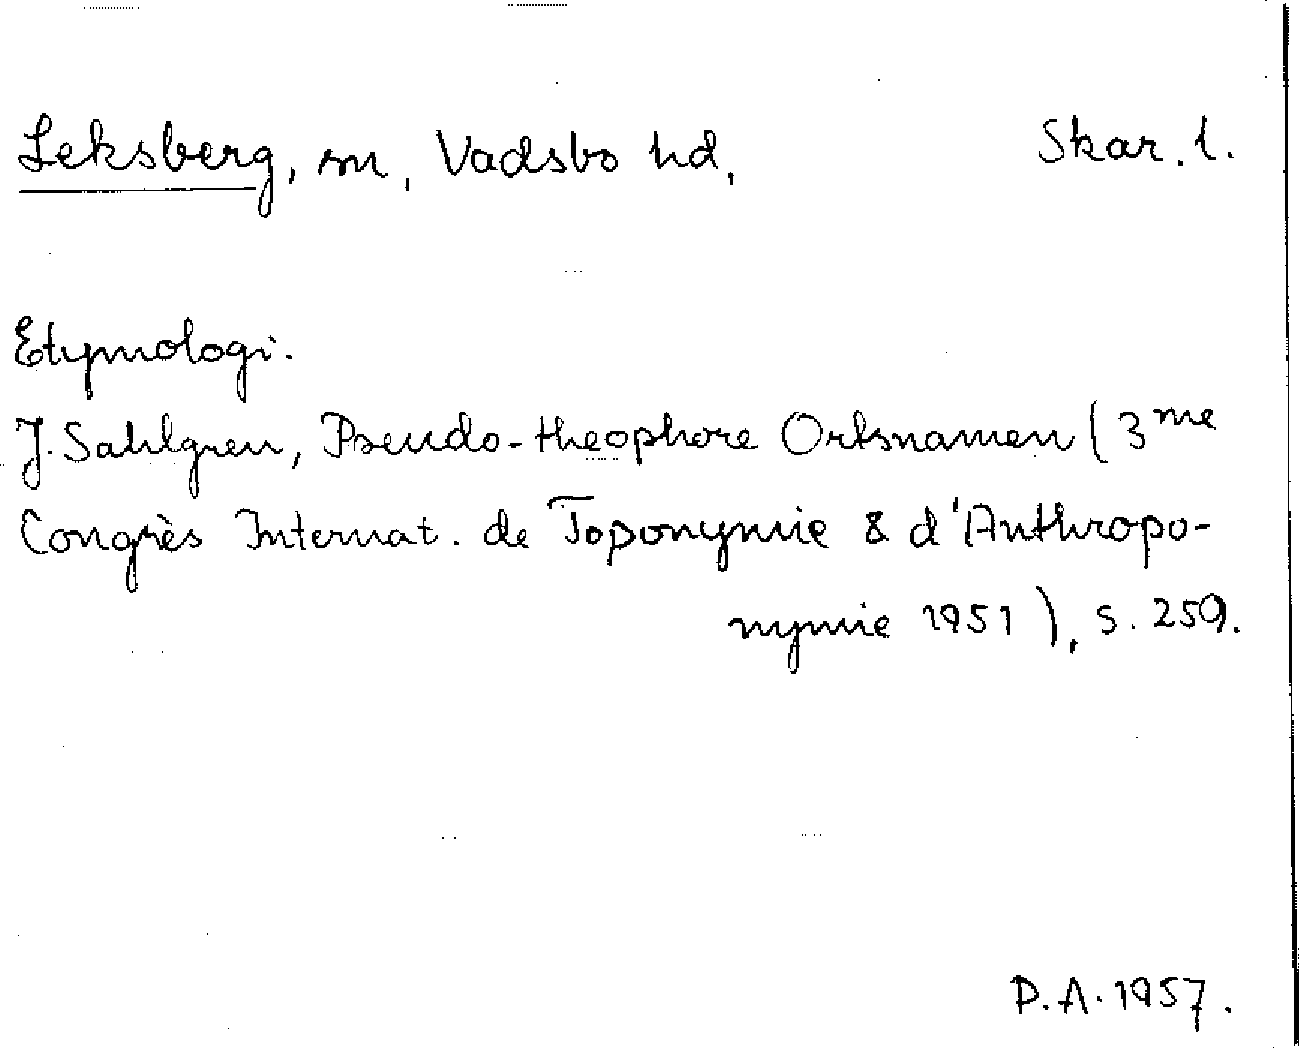 Leksberg, sn, Vadsbo hd, Skar. l.
Etymologi.
J. Sahlgren, Pseudo-theophore Ortsnamen (3me
Congrès Internat. de Toponymie & d'Anthropo-
nymie 1951), s. 259.
P.A. 1957.